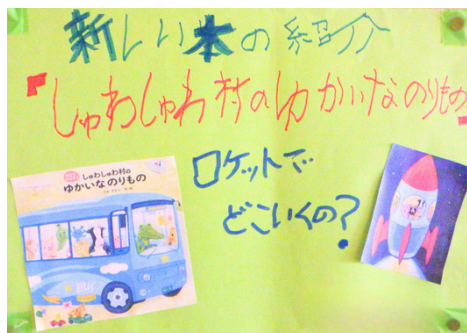 新しい本の紹介
『しゅわしゅわ村のゆかいなのりもの』
ロケットで
どこいくの？
しゅわしゅわ村の
ゆかいなのりもの